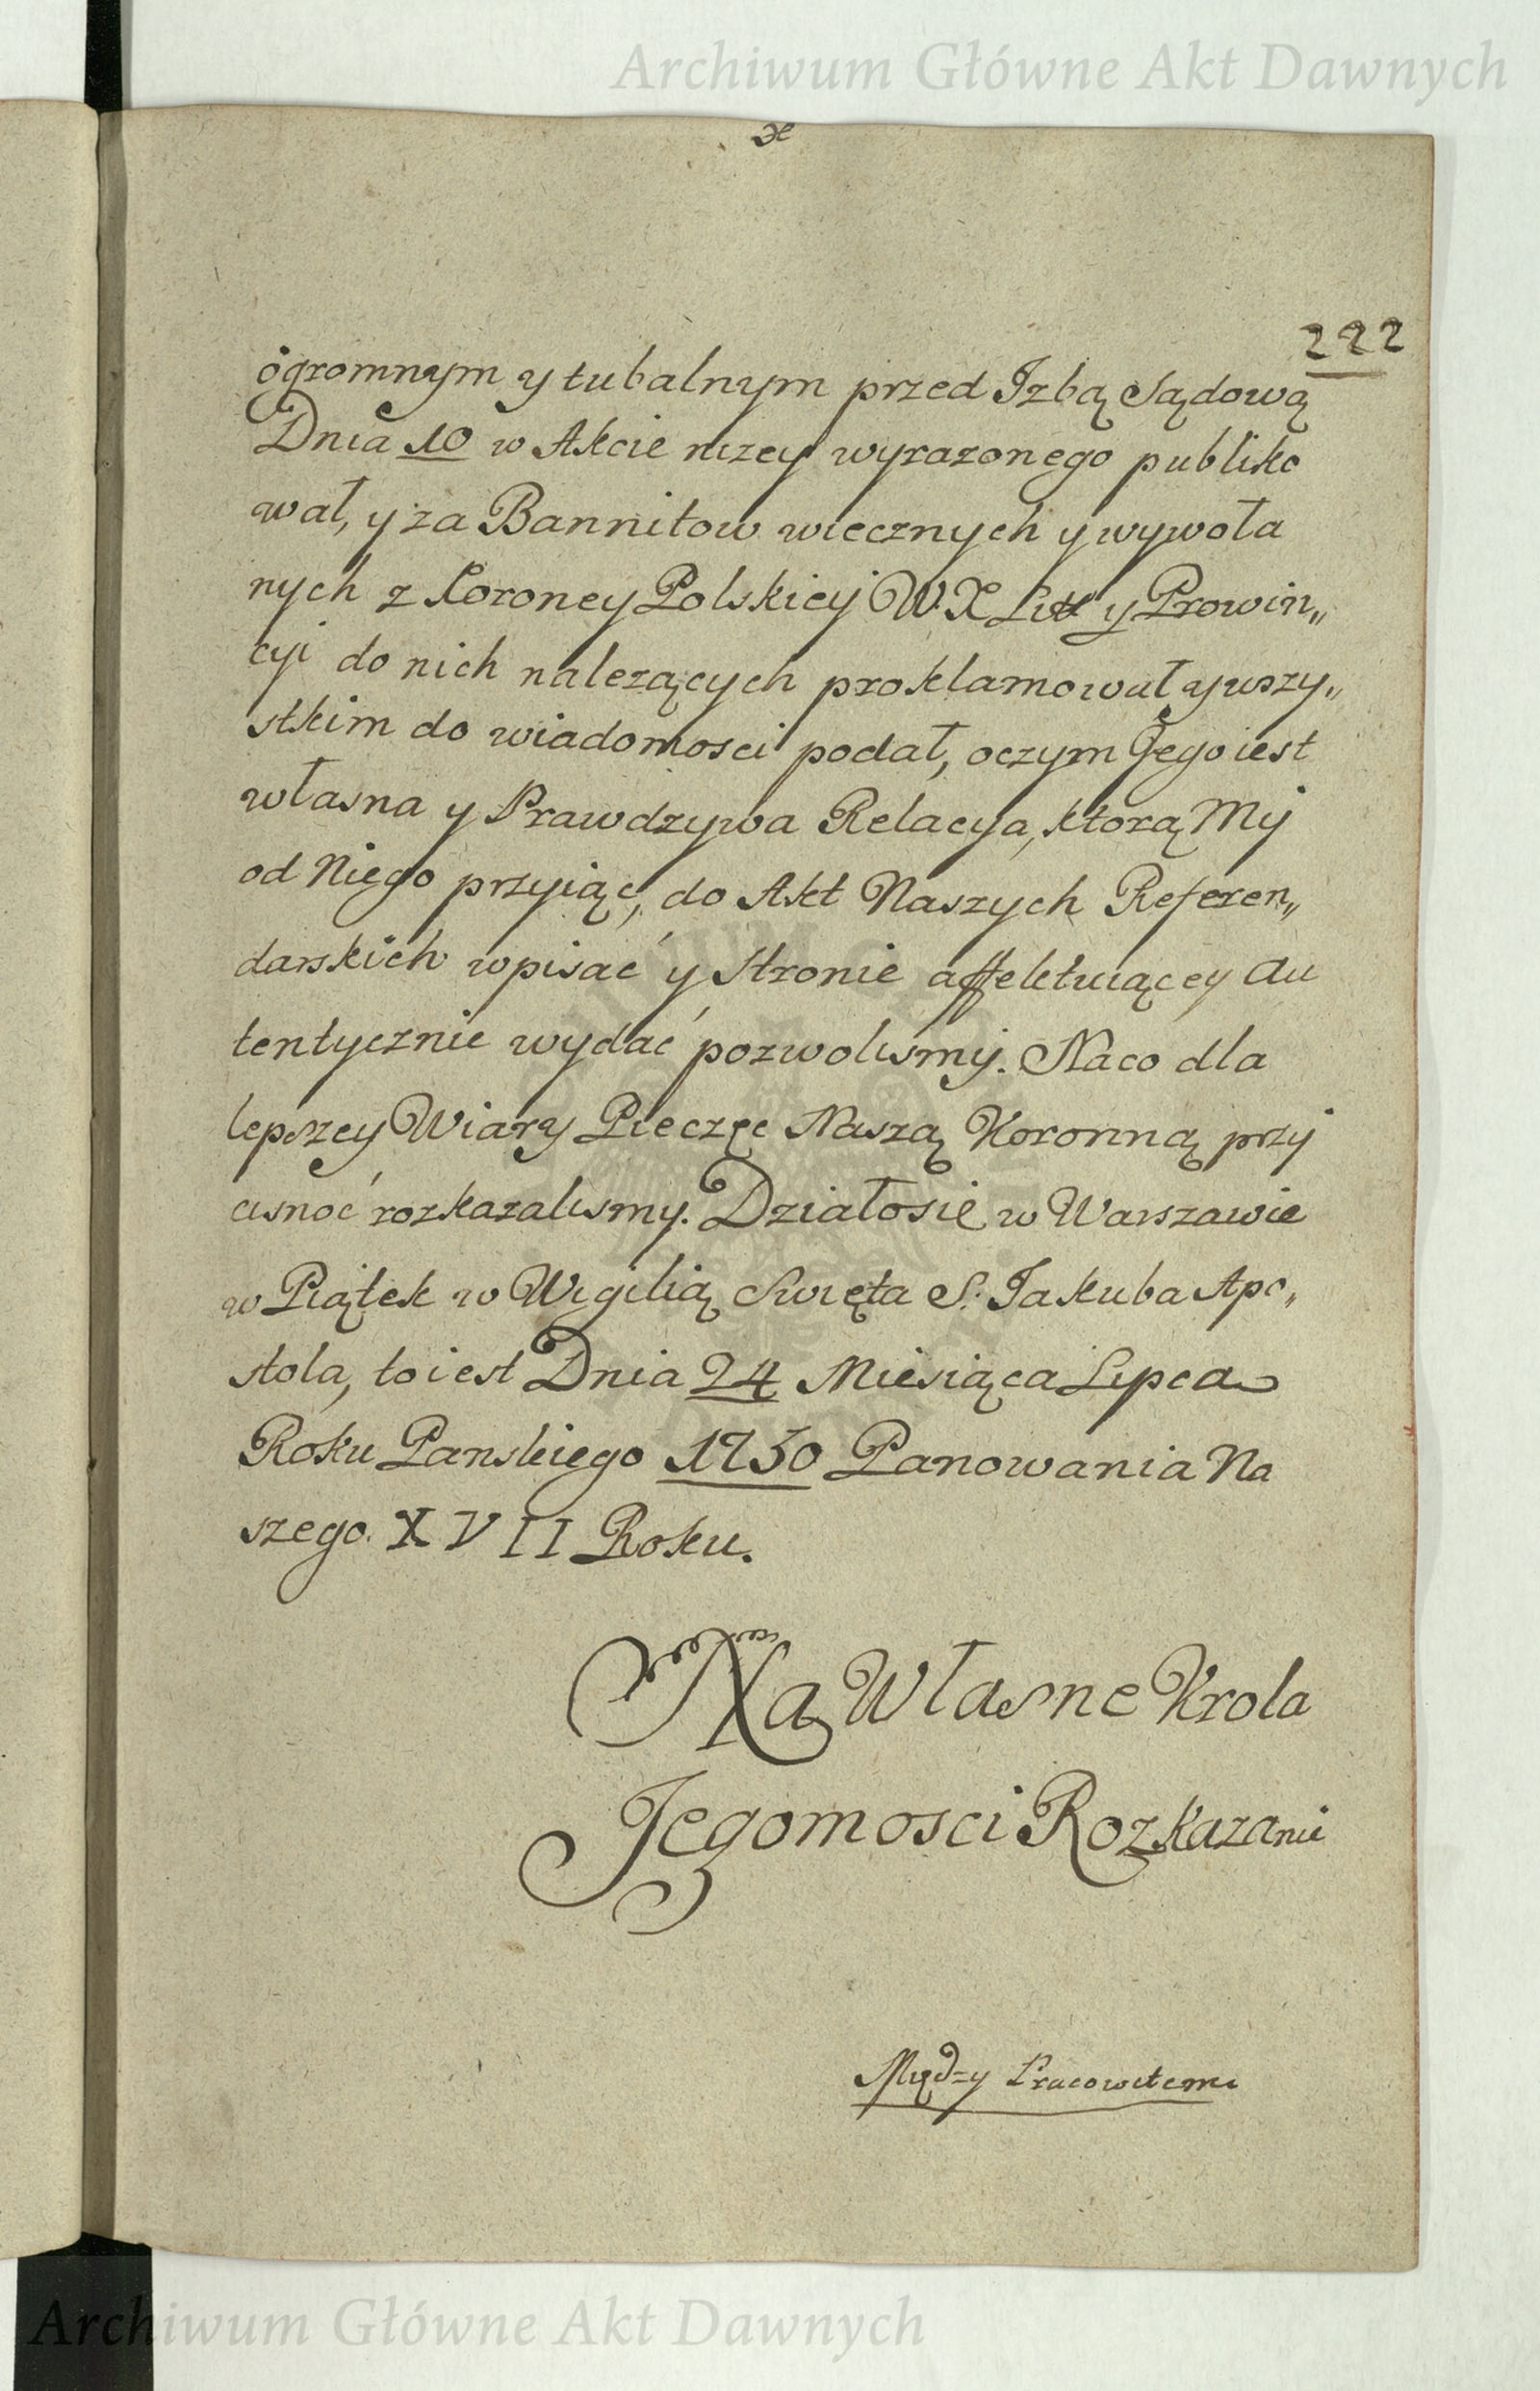 Archiwum Główne Akt Dawnych
222
ogromnym y tubalnym przed Izbą Sądową
Dnia 10 w Akcie nizey wyrazonego publiko
wał, y za Bannitow wiecznych y wywoła
nych z Koroney Polskiey W.X Litt y Prowin„
cyi do nich nalezących proklamował y wszy„
stkim do wiadomosci podał, oczym Jego iest
własna y Prawdzywa Relacya, ktorą My
od Niego przyiąc, do Akt Naszych Referen„
darskich wpisać y Stronie affektuiącey Au
tentycznie wydać pozwolismy. Naco dla
lepszey Wiary Pieczęc Naszą Koronną przy
cisnoć rozkazalismy. Działosie w Warszawie
w Piątek w Wigilią Swięta S. Jakuba Apo„
stola, to iest Dnia 24 Miesiąca Lipca
Roku Panskiego 1750 Panowania Na
szego. XVII Roku.
Na Własne Krola
Jegomosci Rozkazanie
Między Pracowitemi
Archiwum Główne Akt Dawnych